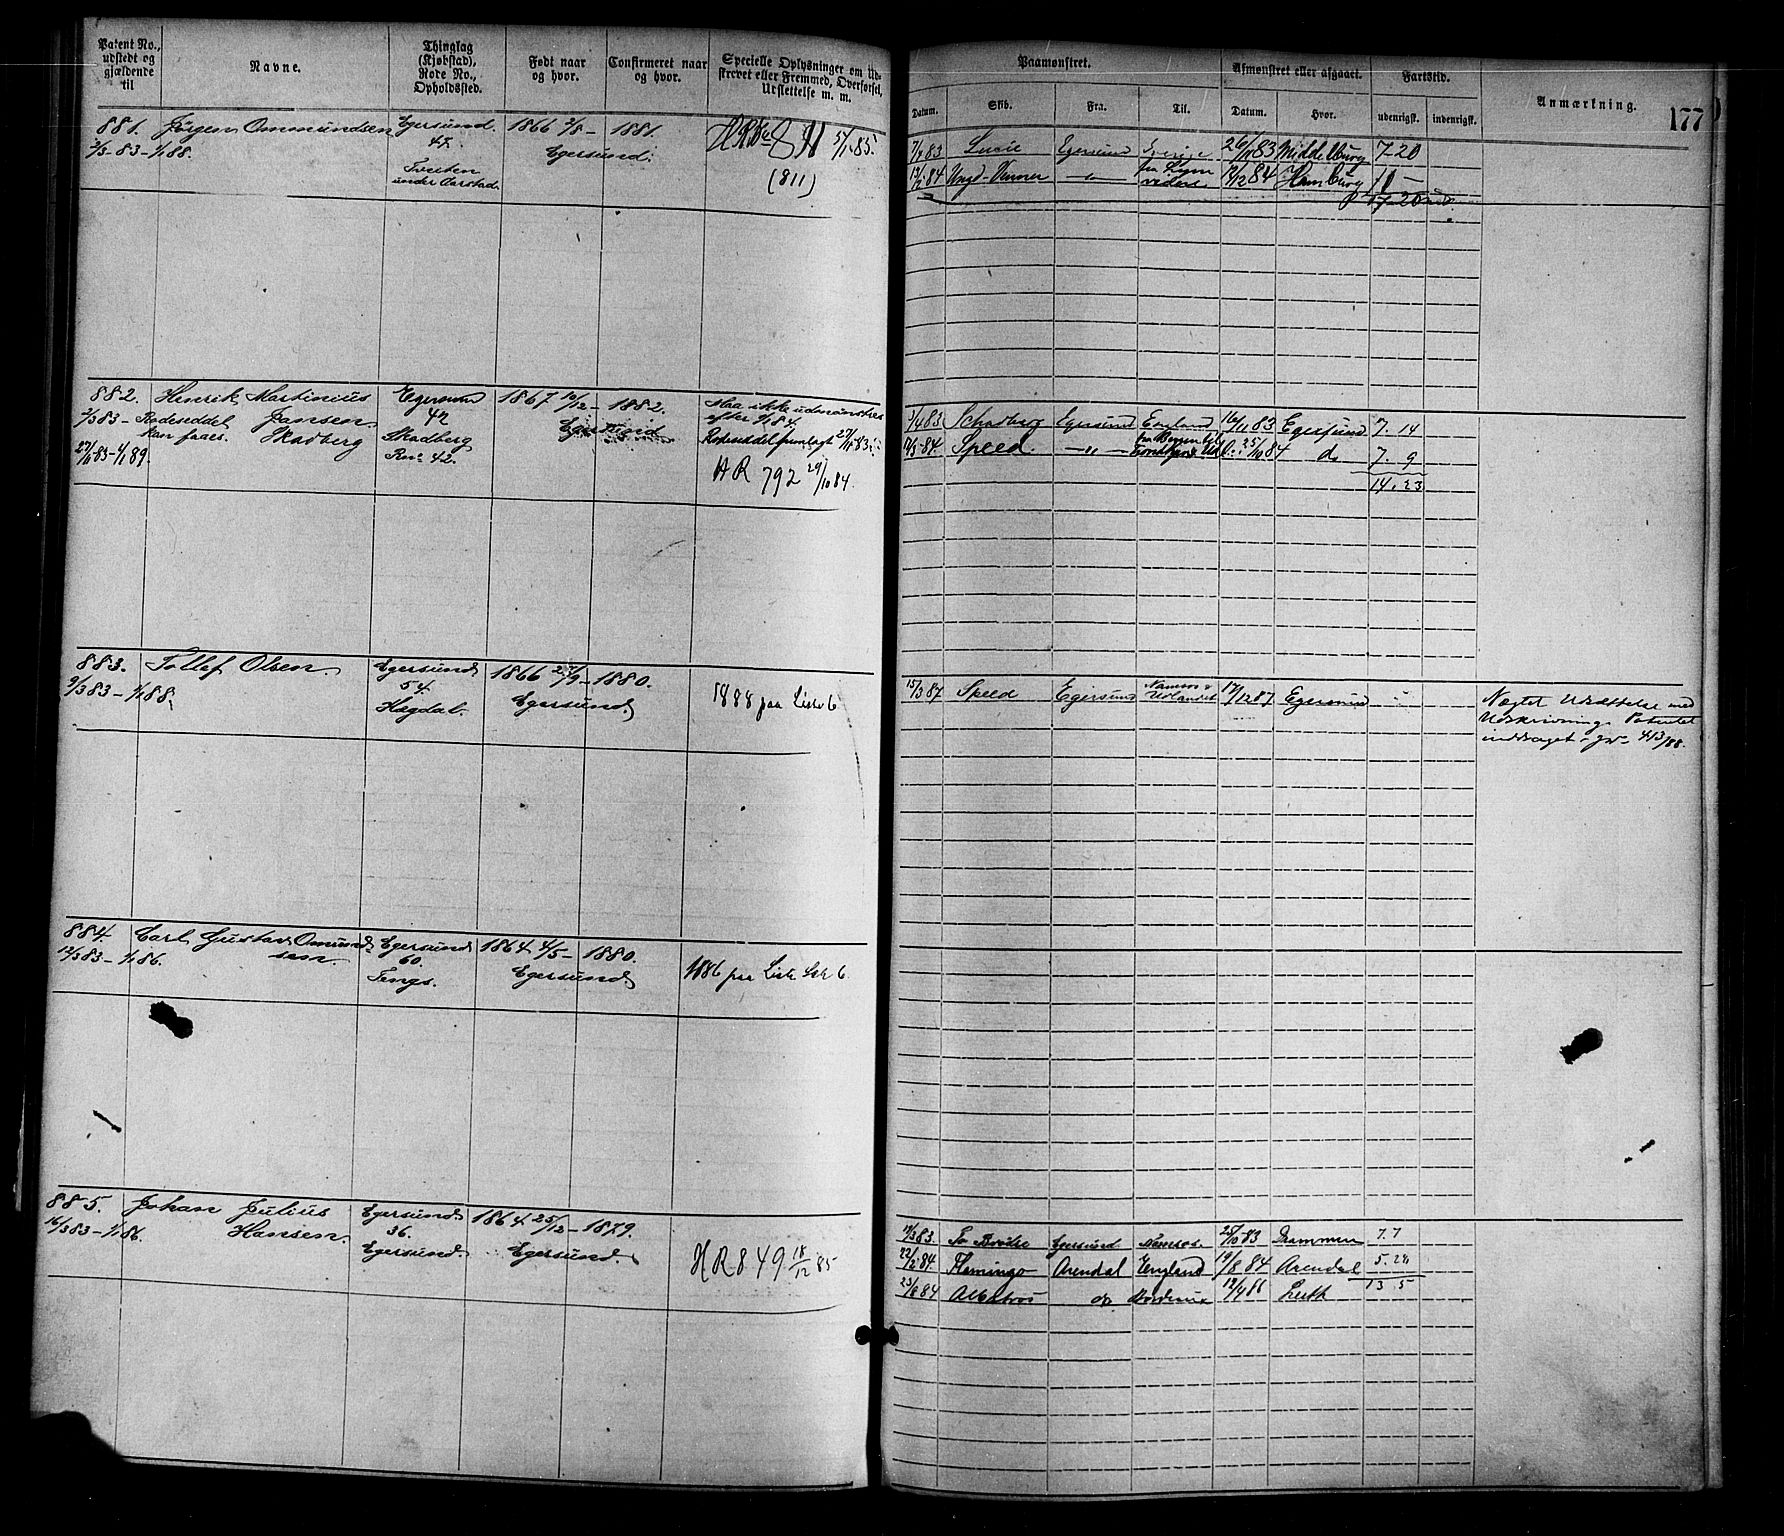 Patent No., udstedt og gjældende til
Navne.
Thinglag (Kjøbstad), Rode No., Opholdssted.
Født naar og hvor.
Confirmeret naar og hvor.
Specielle Oplysninger om Ud-
skrevet eller Fremmed, Overførsel,
Udslettelse m. m.
Paamønstret.
Afmønstret eller afgaaet.
Fartstid.
Anmærkning.
177
Datum.
Skib.
Fra.
Til.
Datum.
Hvor.
udenrigst.
indenrigst.
881. Jörgen Ommundsen Egersund. 1866 2/8 - 1881.
2/3-83-1/1 88. 47. Egersund.
under Aarstad
811 5/1 85.
(811)
7/4 83 Lucie Egersund Sverige 26/11 83 Middelburg 7-20
84 84 Hamburg
17-20
882. Henrik Martinius Egersund 1867 10/12 - 1882. Maa ikke udmønstres
2/3 83 - Rodeseddel Jansen 42 Egersund efter 84.
kan faaes. Skadberg Skadberg Rodeseddel fremlagt 27/11 83.
27/11-83-1/1 89. Rno 42. HR 792 29/10 84.
3/4 83 Schadberg Egersund England 10/11 83 Egersund 7. 14
84. Speed. -„- 25/10 84 do 7. 9
14. 23
883. Tollef Olsen. Egersund 1866 27/9 - 1880.
9/3 83 - 1/1 88. 54. Egersund.
Hægdal. 1888 paa Liste 6
15/3 87 Speed Egersund Namsos & Udlandet 17/12 87 Egersund
Nægtet Udsættelse med
Udskrivning. Patentet
inddraget
884. Carl Gustav Omund- Egersund 1864 4/5 - 1880.
12/3 83 - 1/1 86. sen. 60. Egersund.
Tengs. 1886 paa Liste 6.
885. Johan Julius Egersund 1864 25/12 - 1879.
16/3 83 - 1/1 86. Hansen. 36. Egersund.
Egersund. HR 849 18/12 85
17/3 83. To Brödre Egersund Namsos. 25/10 83 Drammen 7. 7
22/2 84. Flamingo Arendal England 19/8 84 Arendal 5. 28
25/8 84 Albatros do Bordeaux 12/4 86 Leith 13. 5